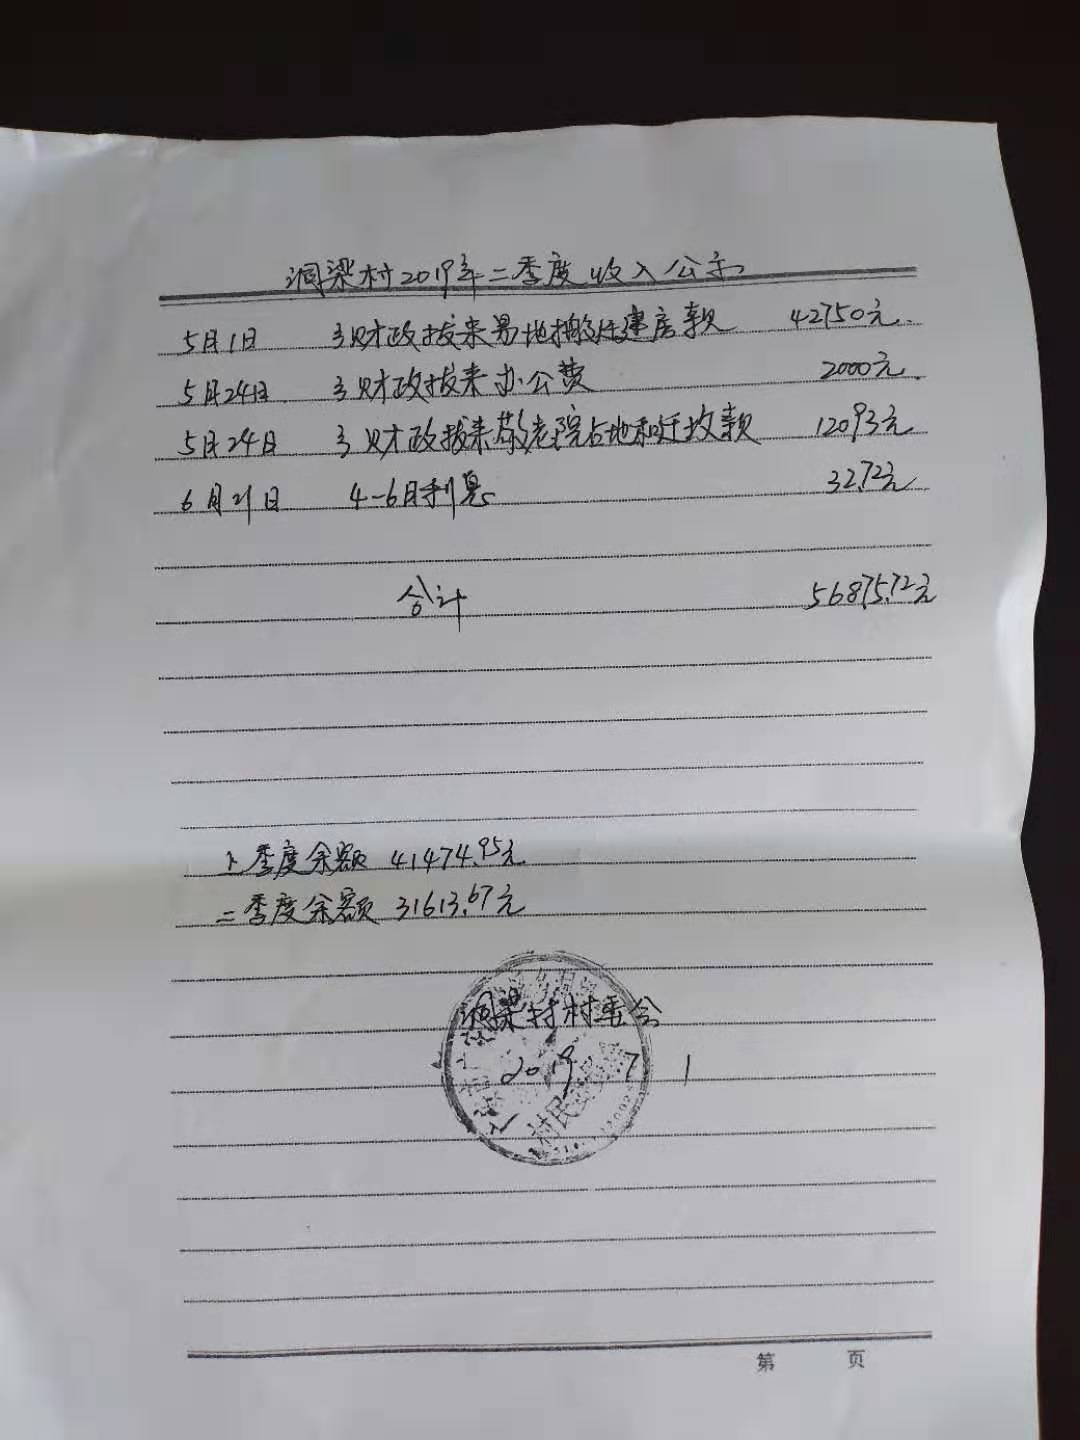 洞梁村2019年二季度收入公示
5月1日 乡财政拔来易地搬迁建房款 42750元.
5月24日. 乡财政拔来办公费 2000元.
5月24日 乡财政拔来敬老院占地和迁坟款 12093元
6月21日 4-6月利息 32.72元
合计 56875.72元
上季度余额 41474.95元
二季度余额 31613.67元
洞梁村村委会
2019 7 1
村民委员会
第 页